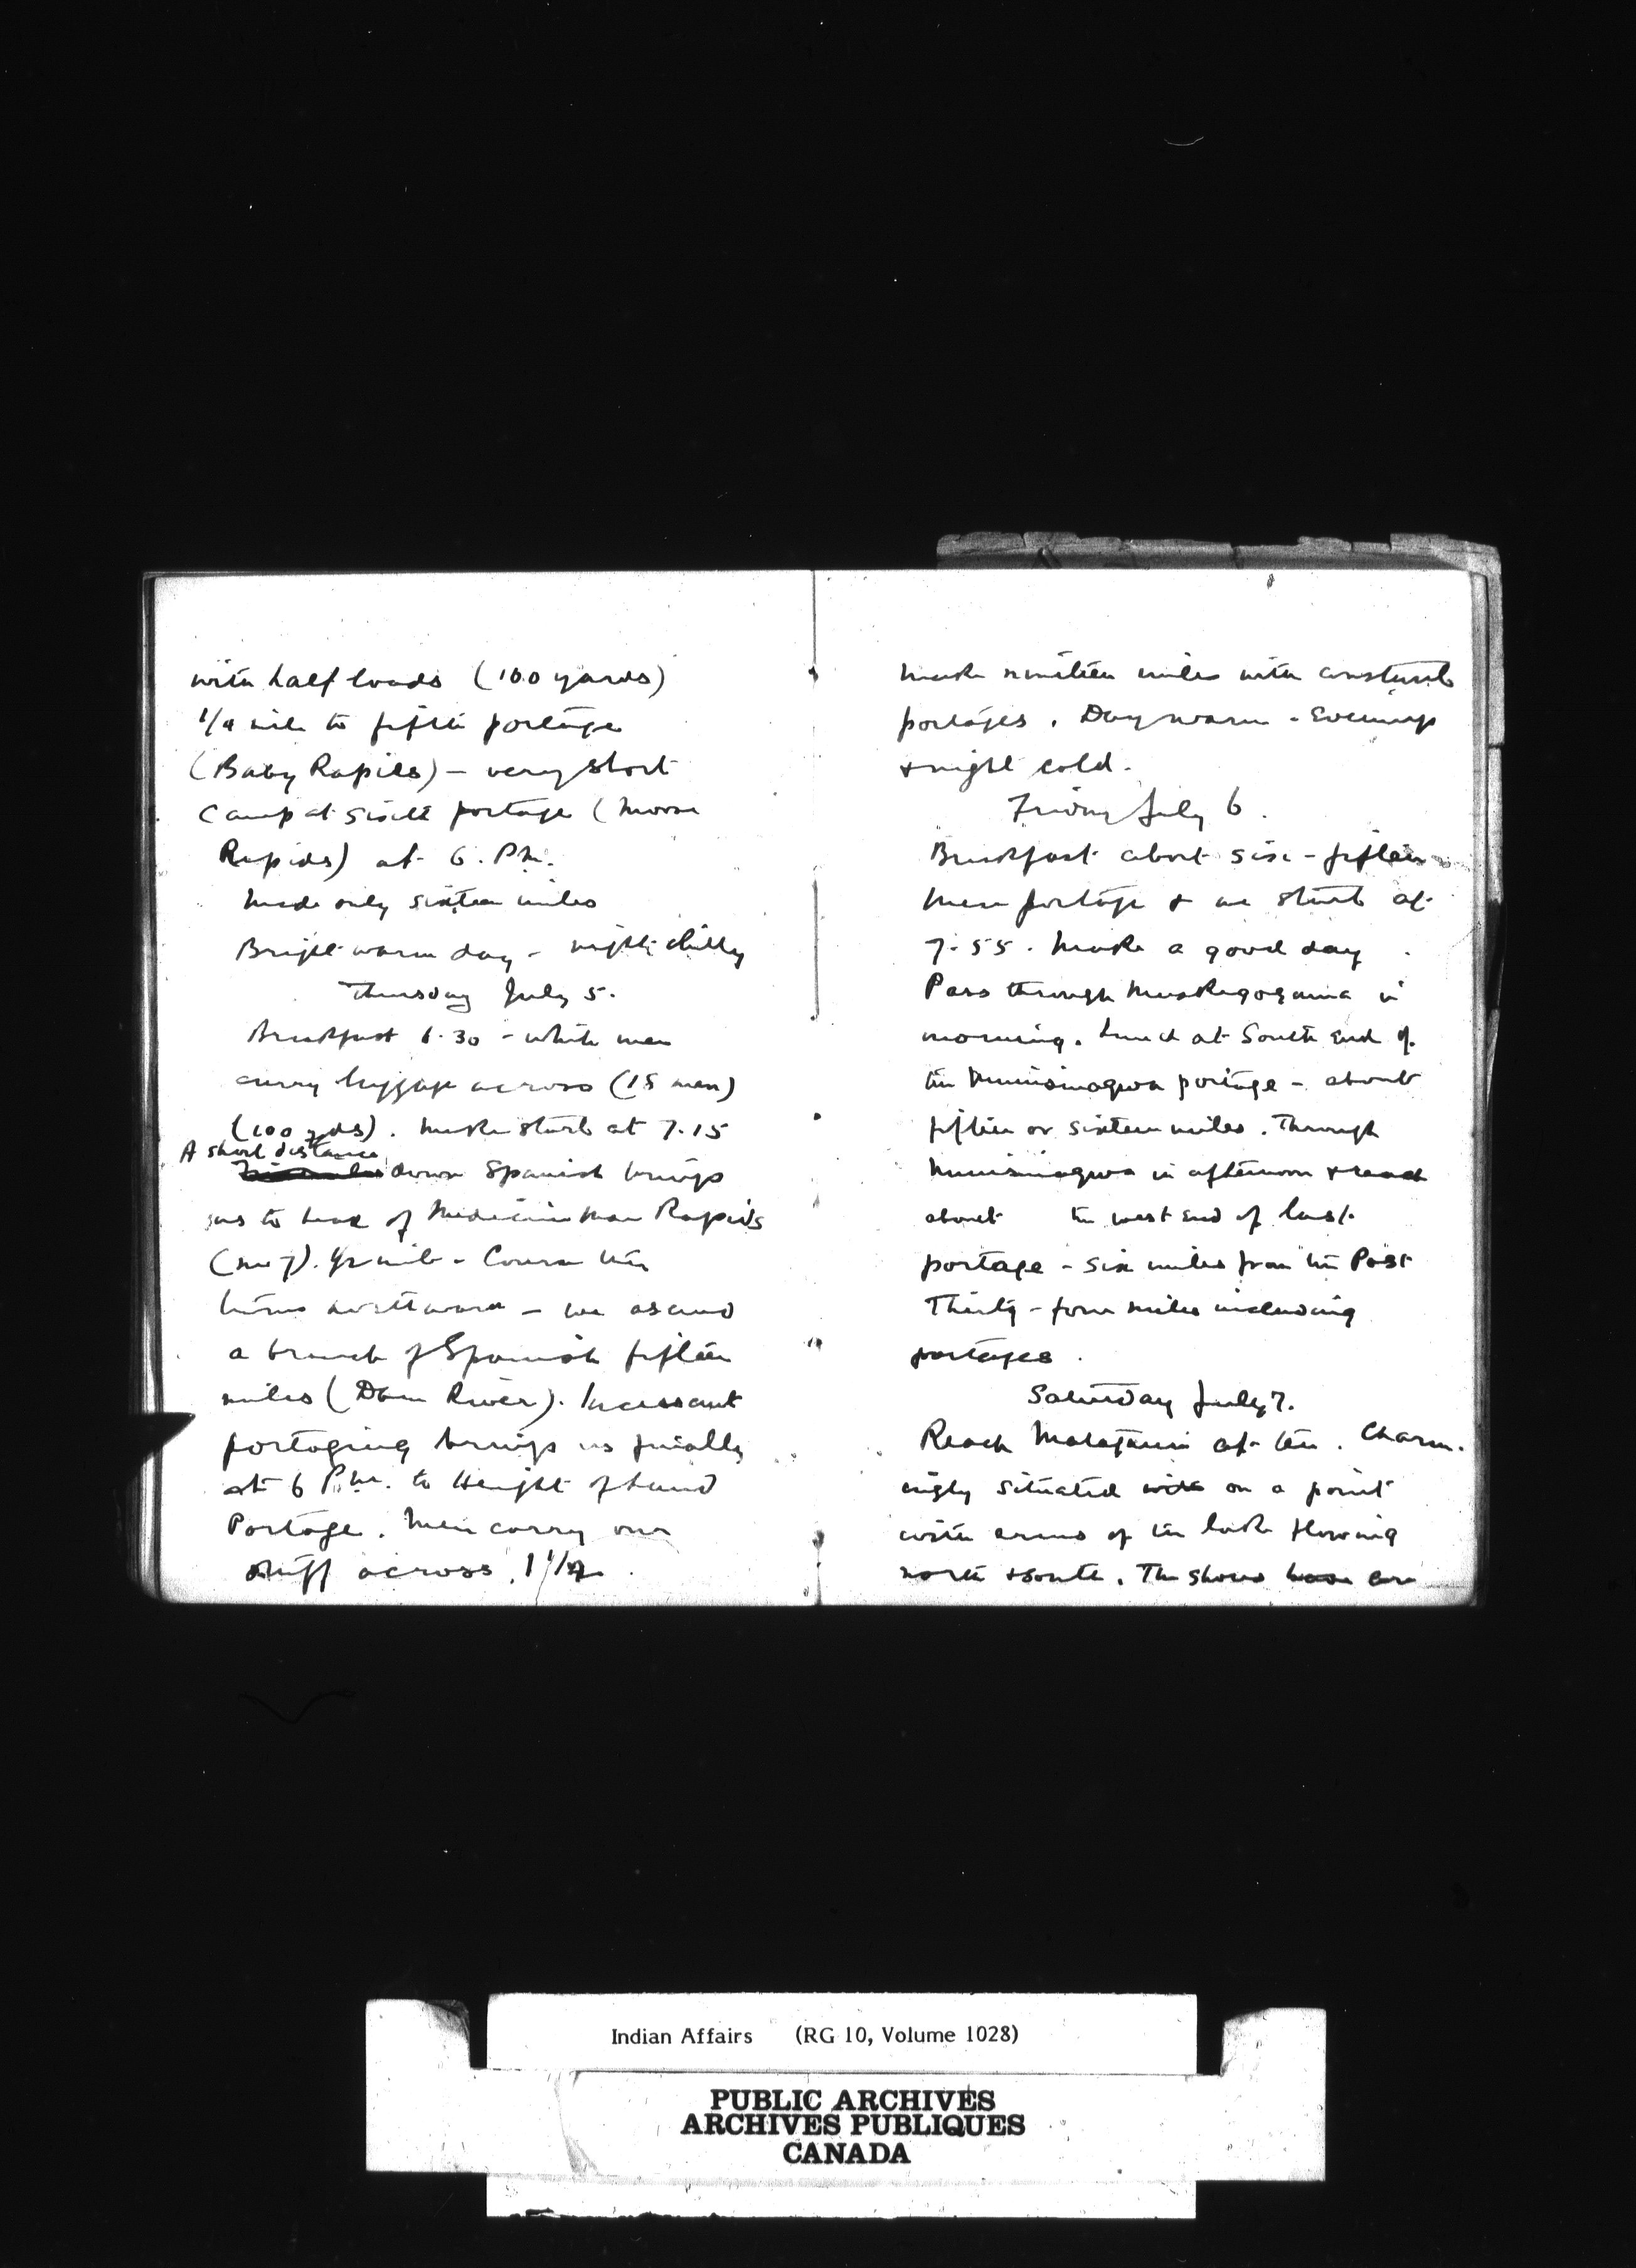 with half loads (100 yards)
1/4 mile to fifth portage
(Baby Rapids) – very short
Camp at sixth portage (Moose
Rapids) at 6. P.M.
Made only sixteen miles
Bright warm day – night chilly
Thursday July 5.
Breakfast 6.30 – white men
carry luggage across (15 men)
(100 yds). Make start at 7.15
A short distance
down Spanish brings
us to head of Medicine Man Rapids
(no 7). 1/2 mile – Course then
turns northward – we ascend
a branch of Spanish fifteen
miles ( River). Incessant
portaging brings us finally
at 6 P.M. to Height of Land
Portage. Men carry our
stuff across. 1 1/2
make nineteen miles with constant
portages. Day warm – Evenings
& night cold.
Friday July 6.
Breakfast about six-fifteen
Men portage & we start at
7.55. Make a good day
Pass through Muskegogama in
morning. Lunch at South End of
the Minnisinaqua portage – about
fifteen or sixteen miles. Through
Minnisinaqua in afternoon & reach
about the west end of last
portage – six miles from the Post
Thirty-four miles including
portages.
Saturday July 7.
Reach Matagami at ten. Charm-
ingly situated with on a point
with arms of the lake flowing
north & south. The shores have are
Indian Affairs (RG 10, Volume 1028)
PUBLIC ARCHIVES
ARCHIVES PUBLIQUES
CANADA